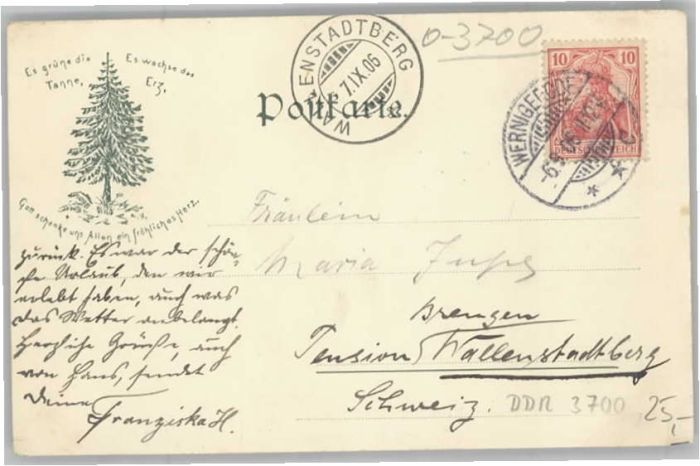 o-3700
Es grüne die
Tanne,
Es wachse das
Erz,
Gott schenke uns Allen ein fröhliches Herz.
WALLENSTADTBERG
7.IX.06
Postkarte.
10 10
DEUTSCHES REICH
WERNIGERODE
6.9.06
Fräulein
Maria
zurück. Es war der schön-
ste Urlaub, den wir
erlebt haben, auch was
das Wetter anbelangt.
Herzliche Grüße, auch
von Hans, sendet
Deine
Franziska H.
Pension Wallenstadtberg
Schweiz.
DDR 3700
25,-